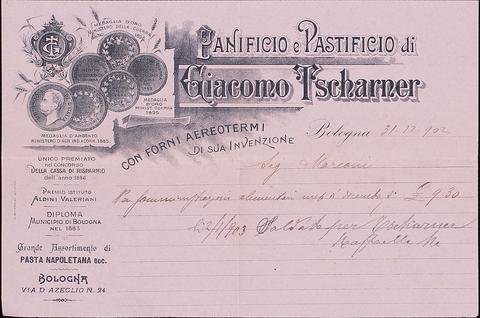 MEDAGLIA D'ORO
MINISTERO DELLA GUERRA
PANIFICIO e PASTIFICIO di
Giacomo Tscharner
MEDAGLIA
D'ORO
MINIST. GUERRA
1895
MEDAGLIA D'ARGENTO
CON FORNI AEREOTERMI
DI SUA INVENZIONE
Bologna 31.12.902
Sig Marconi
UNICO PREMIATO
nel CONCORSO
DELLA CASSA DI RISPARMIO
dell'anno 1886
PREMIO ISTITUTO
ALDINI VALERIANI
DIPLOMA
MUNICIPIO DI BOLOGNA
NEL 1883
Per somministrazioni alimentari £ 9.30
903 Saldato per Tscharner
Raffaella
Grande Assortimento di
PASTA NAPOLETANA ecc.
BOLOGNA
VIA D'AZEGLIO N. 24